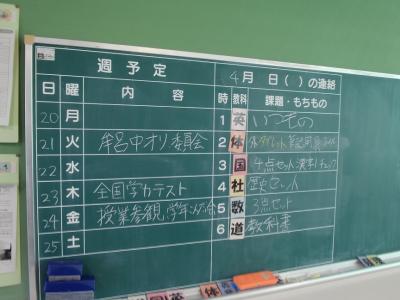 週予定
4月 日( )の連絡
日 曜 内容
時 教科 課題・もちもの
20 月
21 火 牟呂中オリ 委員会
22 水
23 木 全国学力テスト
24 金 授業参観
25 土
1 英 いつもの
2 体
3 国 4点セット 漢字
4 社 歴史セット
5 数 3点セット
6 道 教科書